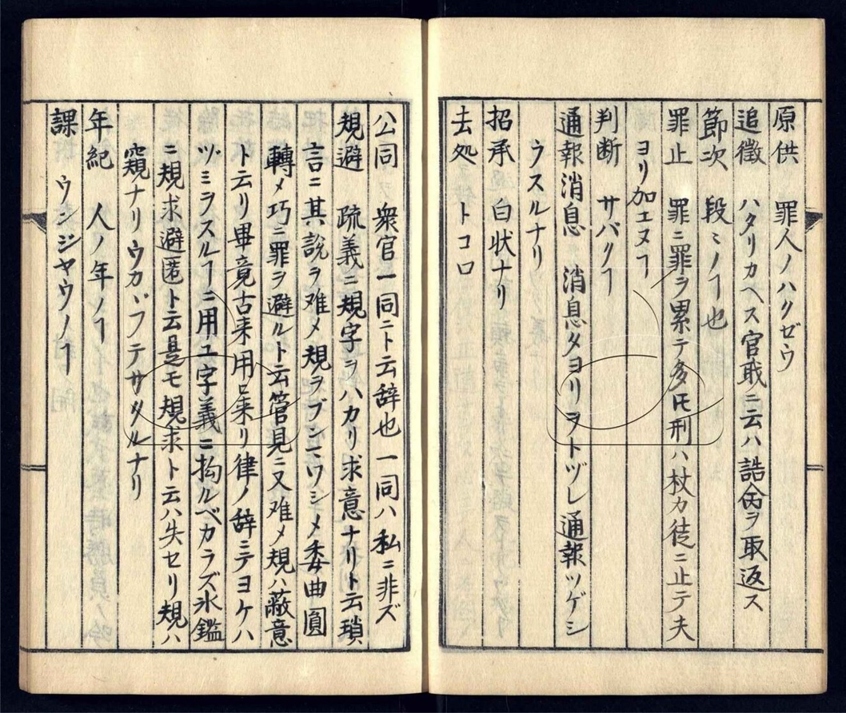 原供 罪人ノハクゼウ
追徴 ハタリカヘス官取ニ云ハ誥命ヲ取返ス
節次 段〻ノヿ也
罪止 罪ニ罪ヲ累テ多圧刑ハ杖カ徒ニ止テ夫
ヨリ加エヌヿ
判断 サバクヿ
通報消息 消息タヨリヲトヅレ通報ツゲシ
ウスルナリ
招承 白状ナリ
去処 トコロ
公同 衆官一同ニト云辞也一同ハ私ニ非ズ
規避 疏義ニ規字ヲハカリ求意ナリト云瑣
言ニ其説ヲ难メ規ヲブンマワシメ委曲圓
轉メ巧ニ罪ヲ避ルト云管見ニ又难メ規ハ蔽意
ト云リ畢竟古来用ヒ来リ律ノ辞ミテヨケハ
ヅミヲスルヿニ用ユ字義ニ拘ルベカラズ氷鑑
ニ規求避匿ト云是モ規求ト云ハ失セリ規ハ
窺ナリウカヾフテサタルナリ
年紀 人ノ年ノヿ
課 ウンジヤウノヿ